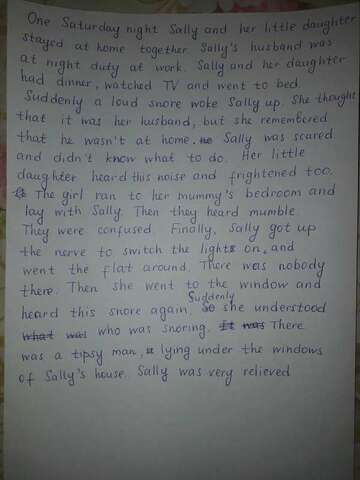 One Saturday night Sally and her little daughter
stayed at home together. Sally's husband was
at night duty at work. Sally and her daughter
had dinner, watched TV and went to bed.
Suddenly a loud snore woke Sally up. She thought
that it was her husband, but she remembered
that he wasn't at home. he Sally was scared
and didn't know what to do. Her little
daughter heard this noise and frightened too.
The girl ran to her mummy's bedroom and
lay with Sally. Then they heard mumble.
They were confused. Finally, Sally got up
the nerve to switch the lights on, and
went the flat around. There was nobody
there. Then she went to the window and
Suddenly
heard this snore again. So she understood
what was who was snoring. It was There
was a tipsy man, lying under the windows
of Sally's house. Sally was very relieved